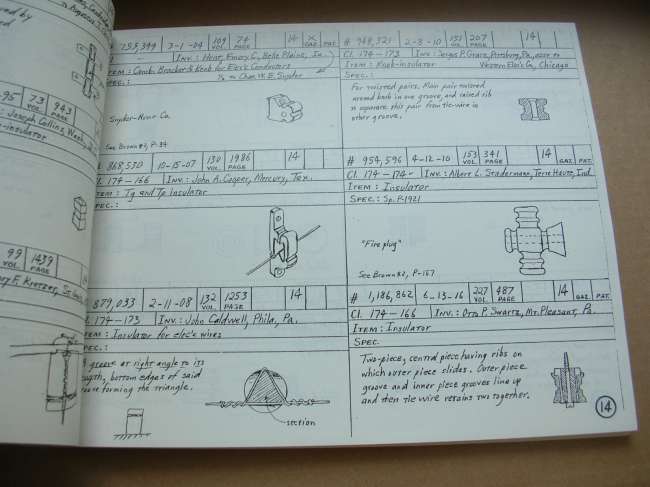 # 753,344 3-1-04 109 VOL. 74 PAGE 14 X GAZ. PAT.
INV.: Hear, Emory C., Belle Plaine, Ia.
ITEM: Comb. Bracket & Knob for Elec. Conductors
½ to Chas. W. E. Snyder
SPEC.:
Snyder-Hear Co.
See Brown #2, P-34
868,530 10-15-07 130 VOL. 1986 PAGE 14
Cl. 174-166 INV.: John A. Capers, Mercury, Tex.
ITEM: Tg and Tp Insulator
SPEC.:
879,033 2-11-08 132 VOL. 1253 PAGE 14
174-173 INV.: John Caldwell, Phila, Pa.
ITEM: Insulator for elec. wires
SPEC.:
groove at right angle to its
length, bottom edges of said
groove forming the triangle.
section
# 948,521 2-8-10 151 VOL. 207 PAGE 14
Cl. 174-173 INV.: Sergius P. Grace, Pittsburg, Pa., assr to
ITEM: Knob-Insulator Western Elec. Co., Chicago
SPEC.:
For twisted pairs. Main pair twisted
around knob in one groove, and raised rib
to separate this pair from tie-wire in
other groove.
# 954,596 4-12-10 153 VOL. 341 PAGE 14 GAZ. PAT.
Cl. 174-174 INV.: Albert L. Stadermann, Terre Haute, Ind.
ITEM: Insulator
SPEC.: Sp. P-1921
"Fire plug"
See Brown #2, P-157
# 1,186,862 6-13-16 227 VOL. 487 PAGE 14 GAZ. PAT.
Cl. 174-166 INV.: Otto P. Swartz, Mt. Pleasant, Pa.
ITEM: Insulator
SPEC.
Two-piece, central piece having ribs on
which outer piece slides. Outer piece
groove and inner piece grooves line up
and then tie wire retains two together.
14
-95 73 VOL. 943 PAGE
Joseph Collins, Wash.
insulator
99 VOL. 1439 PAGE
F. Kretzer, St. Louis